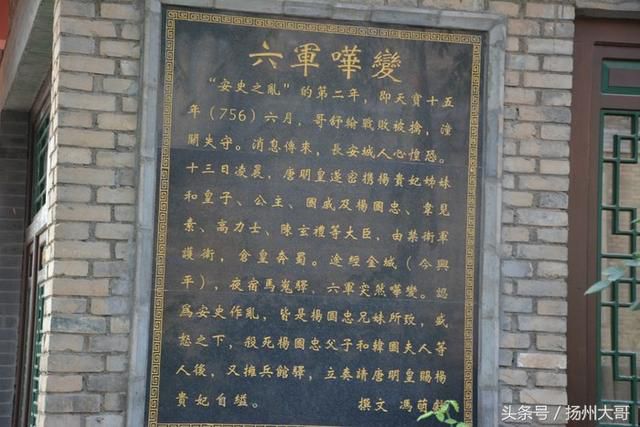 六軍嘩變
“安史之亂”的第二年，即天寶十五
年（756）六月，哥舒翰戰敗被擒，潼
關失守。消息傳來，長安城人心惶恐。
十三日凌晨，唐明皇遂密携楊貴妃姊妹
和皇子、公主、國戚及楊國忠、韋見
素、高力士、陳玄禮等大臣，由禁衛軍
護衛，倉皇奔蜀。途經金城（今興
平），夜宿馬嵬驛，六軍突然嘩變。認
爲安史作亂，皆是楊國忠兄妹所致，盛
怒之下，殺死楊國忠父子和韓國夫人等
人後，又擁兵館驛，立奏請唐明皇賜楊
貴妃自縊。 撰文 馮萌
头条号 / 扬州大哥